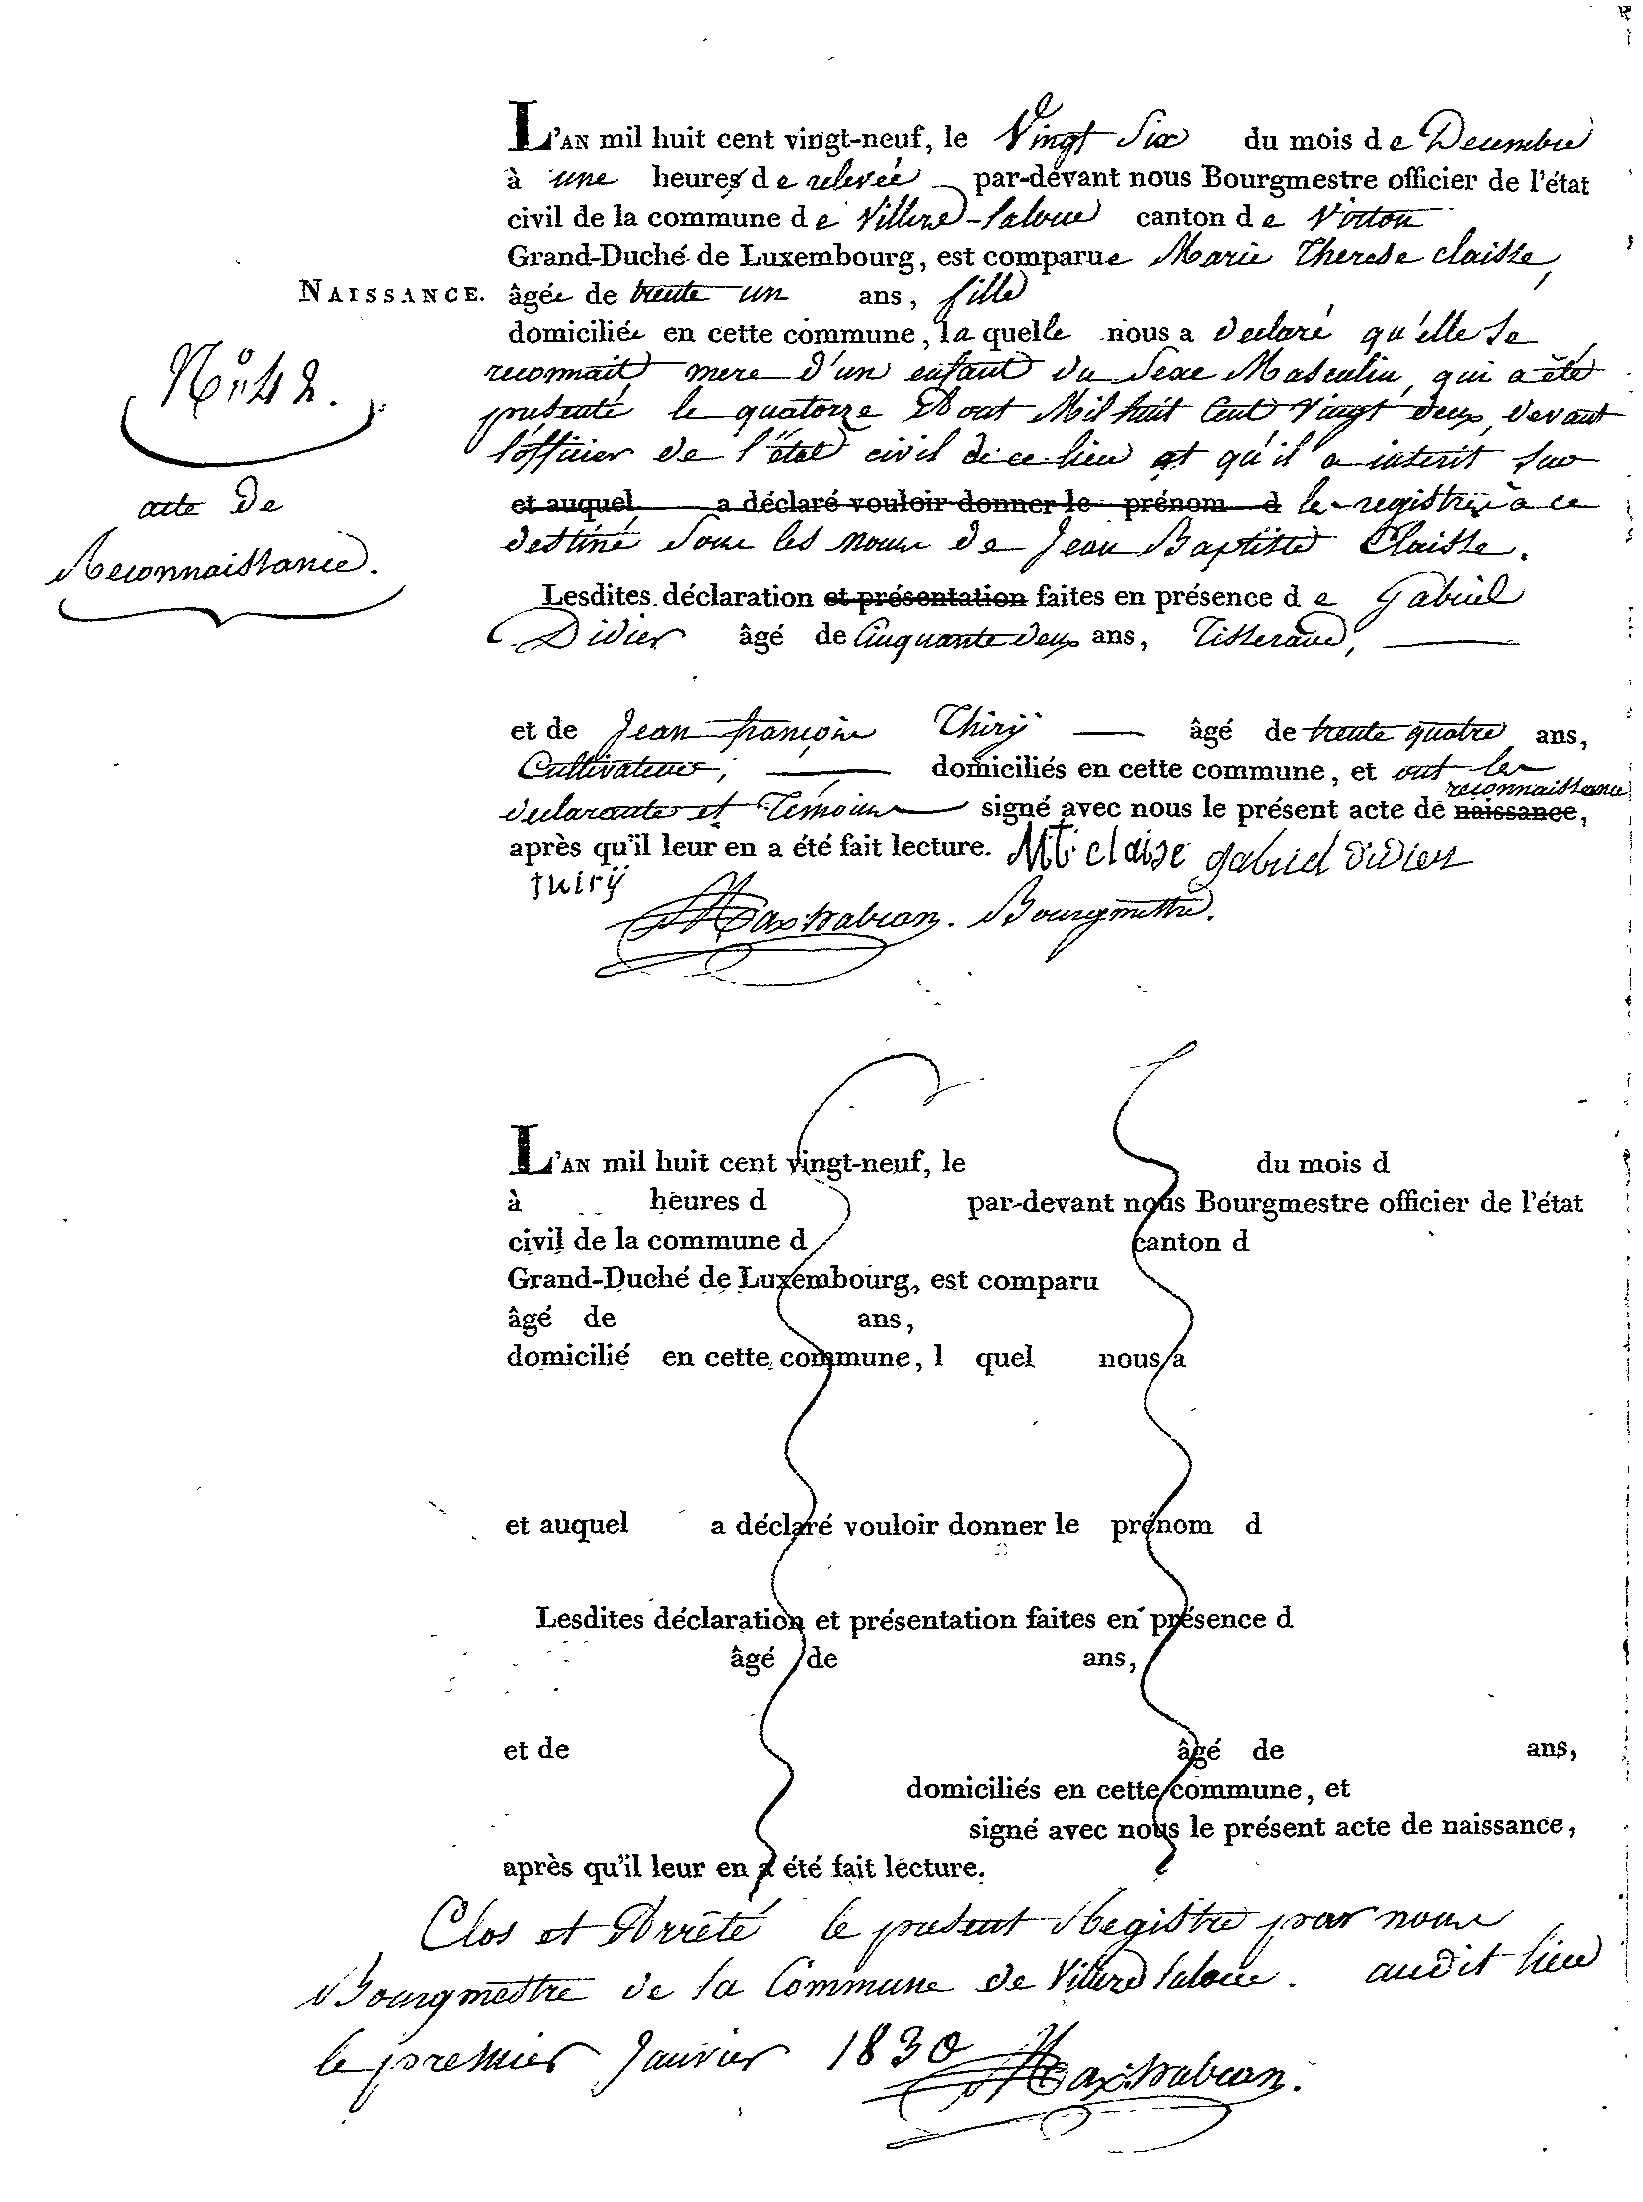 L'AN mil huit cent vingt-neuf, le Vingt Six du mois de Decembre
à une heures de relevée par-devant nous Bourgmestre officier de l'état
civil de la commune de Villers-laloue canton de Virton
Grand-Duché de Luxembourg, est comparue Marie Therese claisse,
NAISSANCE. âgée de trente un ans, fille
domiciliée en cette commune, la quelle nous a declaré qu'elle se
N° 42. reconnait mere d'un enfant du Sexe Masculin, qui a été
presenté le quatorze Aout Mil huit Cent Vingt deux, devant
l'officier de l'état civil de ce lieu et qu'il a inscrit sur
acte De et auquel a déclaré vouloir donner le prénom d le registre à ce
destiné Sous les noms de Jean Baptiste Claisse.
Reconnaissance.
Lesdites déclaration et présentation faites en présence de Gabriel
Didier âgé de Cinquante deux ans, Tisserand,
et de Jean françois Thirÿ âgé de trente quatre ans,
Cultivateur, domiciliés en cette commune, et ont les
reconnaissance
declarante et Témoins signé avec nous le présent acte de naissance,
après qu'il leur en a été fait lecture. M t. claise gabriel didier
thirÿ
Bourgmestre.
L'AN mil huit cent vingt-neuf, le du mois d
à heures d par-devant nous Bourgmestre officier de l'état
civil de la commune d canton d
Grand-Duché de Luxembourg, est comparu
âgé de ans,
domicilié en cette commune, l quel nous a
et auquel a déclaré vouloir donner le prénom d
Lesdites déclaration et présentation faites en présence d
âgé de ans,
et de âgé de ans,
domiciliés en cette commune, et
signé avec nous le présent acte de naissance,
après qu'il leur en a été fait lecture.
Clos et Arrêté le present Registre par nous
Bourgmestre de la Commune de Villers laloue. audit lieu
le premier Janvier 1830